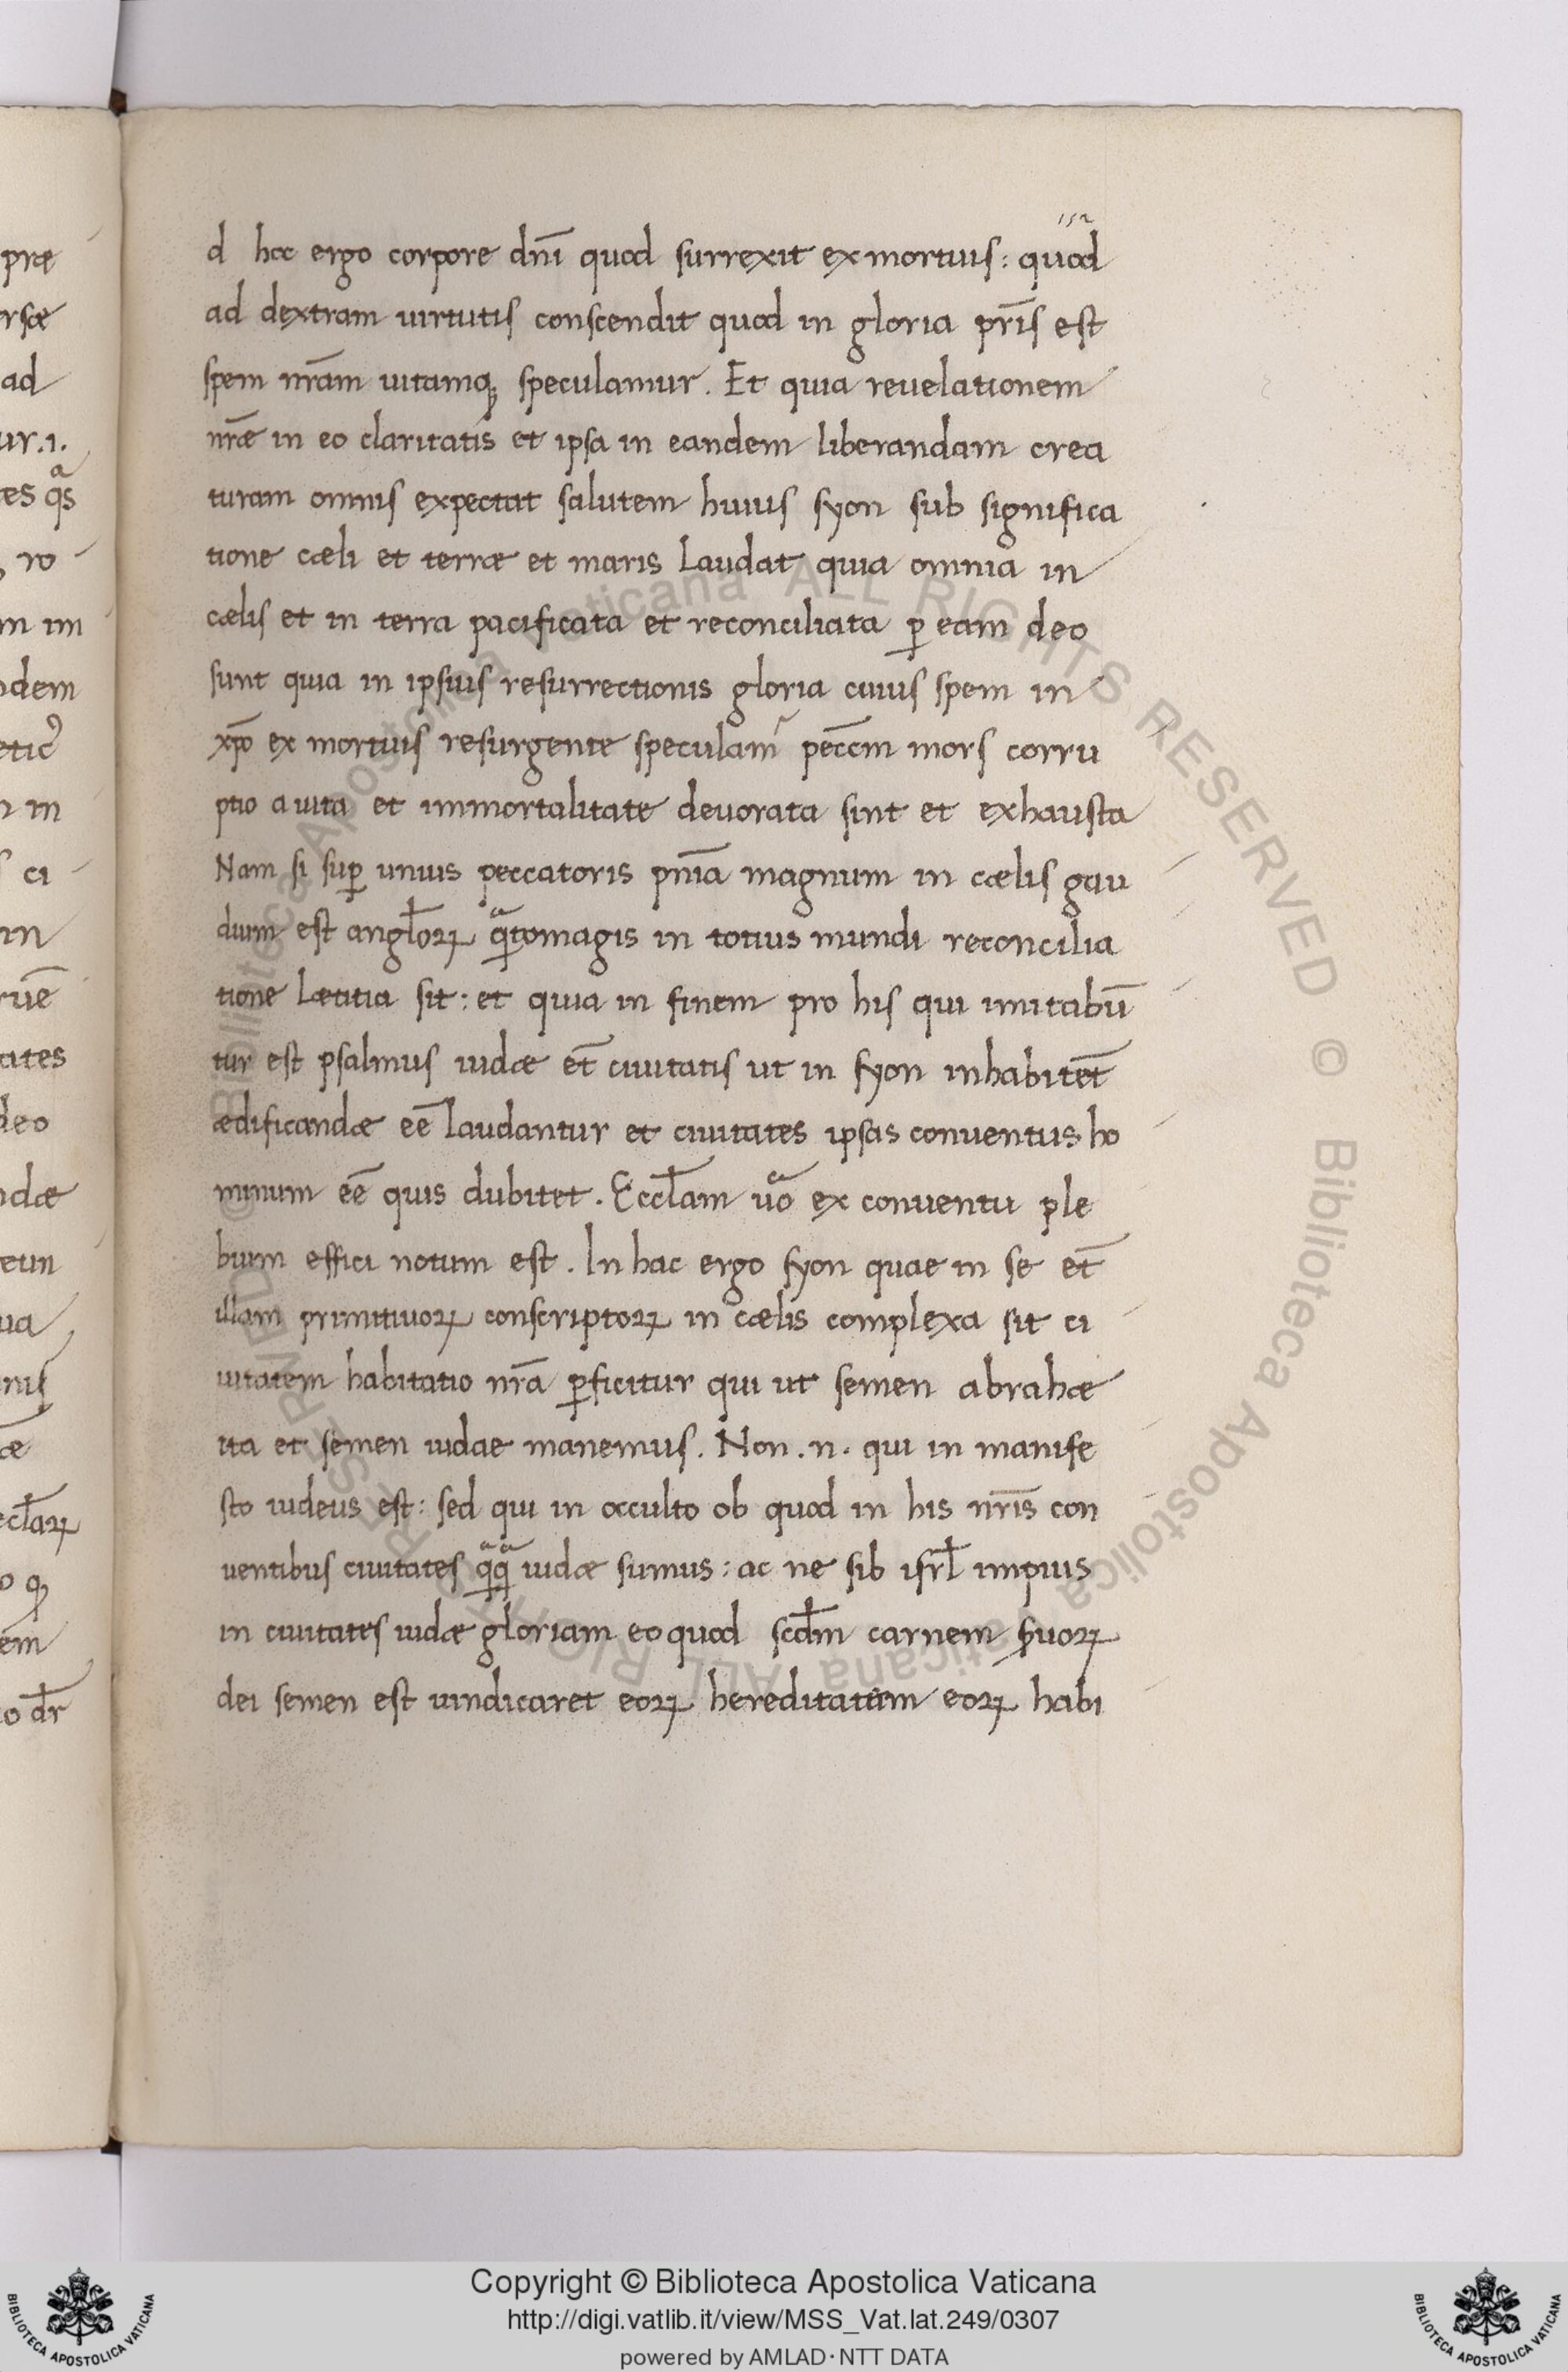 152
præ
d hoc ergo corpore dñi quod surrexit ex mortuis: quod
rsæ
ad dextram uirtutis conscendit quod in gloria pr̄is est
ad
spem nr̄am uitamq; speculamur. Et quia reuelationem
ur.1.
nr̄æ in eo claritatis et ipsa in eandem liberandam crea
turam omnis expectat salutem huius syon sub significa
ro
tione cæli et terræ et maris laudat quia omnia in
cælis et in terra pacificata et reconciliata p̲ eam deo
dem
sunt quia in ipsius resurrectionis gloria cuius spem in
xp̄o ex mortuis resurgente speculam̃ pecc̄m mors corru
ptio a uita et immortalitate deuorata sint et exhausta
ci
Nam si sup̲ unius peccatoris pnīa magnum in cælis gau
dium est angl̄oꝝ q̲ͣtomagis in totius mundi reconcilia
ruē
tione lætitia sit: et quia in finem pro his qui imitabū
ates
tur est psalmus iudæ et̄ ciuitatis ut in syon inhabitet̄
deo
ædificandæ eē laudantur et ciuitates ipsas conuentus ho
dæ
minum eē quis dubitet. Eccl̄am uͦo ex conuentu ple
eun
bium effici notum est. In hac ergo syon quae in se et̄
ua
illam primitiuoꝝ conscriptoꝝ in cælis complexa sit ci
nis
uitatem habitatio nr̄a p̲ficitur qui ut semen abrahæ
ita et semen iudae manemus. Non .n. qui in manife
cl̄aꝝ
sto iudeus est: sed qui in occulto ob quod in his nr̄is con
uentibus ciuitates qͣqͣ iudæ sumus: ac ne sib isrl̄ impius
in ciuitates iudæ gloriam eo quod scd̄m carnem ẜuoꝝ
o dr̄
dei semen est uindicaret eoꝝ hereditatem eoꝝ habi
© Biblioteca Apostolica Vaticana ALL RIGHTS RESERVED © Biblioteca Apostolica Vaticana ALL RIGHTS RESERVED
Copyright © Biblioteca Apostolica Vaticana
http://digi.vatlib.it/view/MSS_Vat.lat.249/0307
powered by AMLAD·NTT DATA
BIBLIOTECA APOSTOLICA VATICANA
BIBLIOTECA APOSTOLICA VATICANA